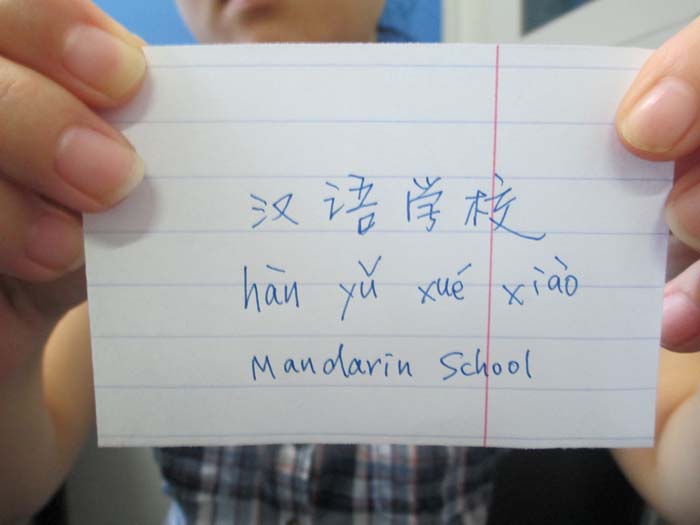 汉语学校
hàn yǔ xué xiào
Mandarin School